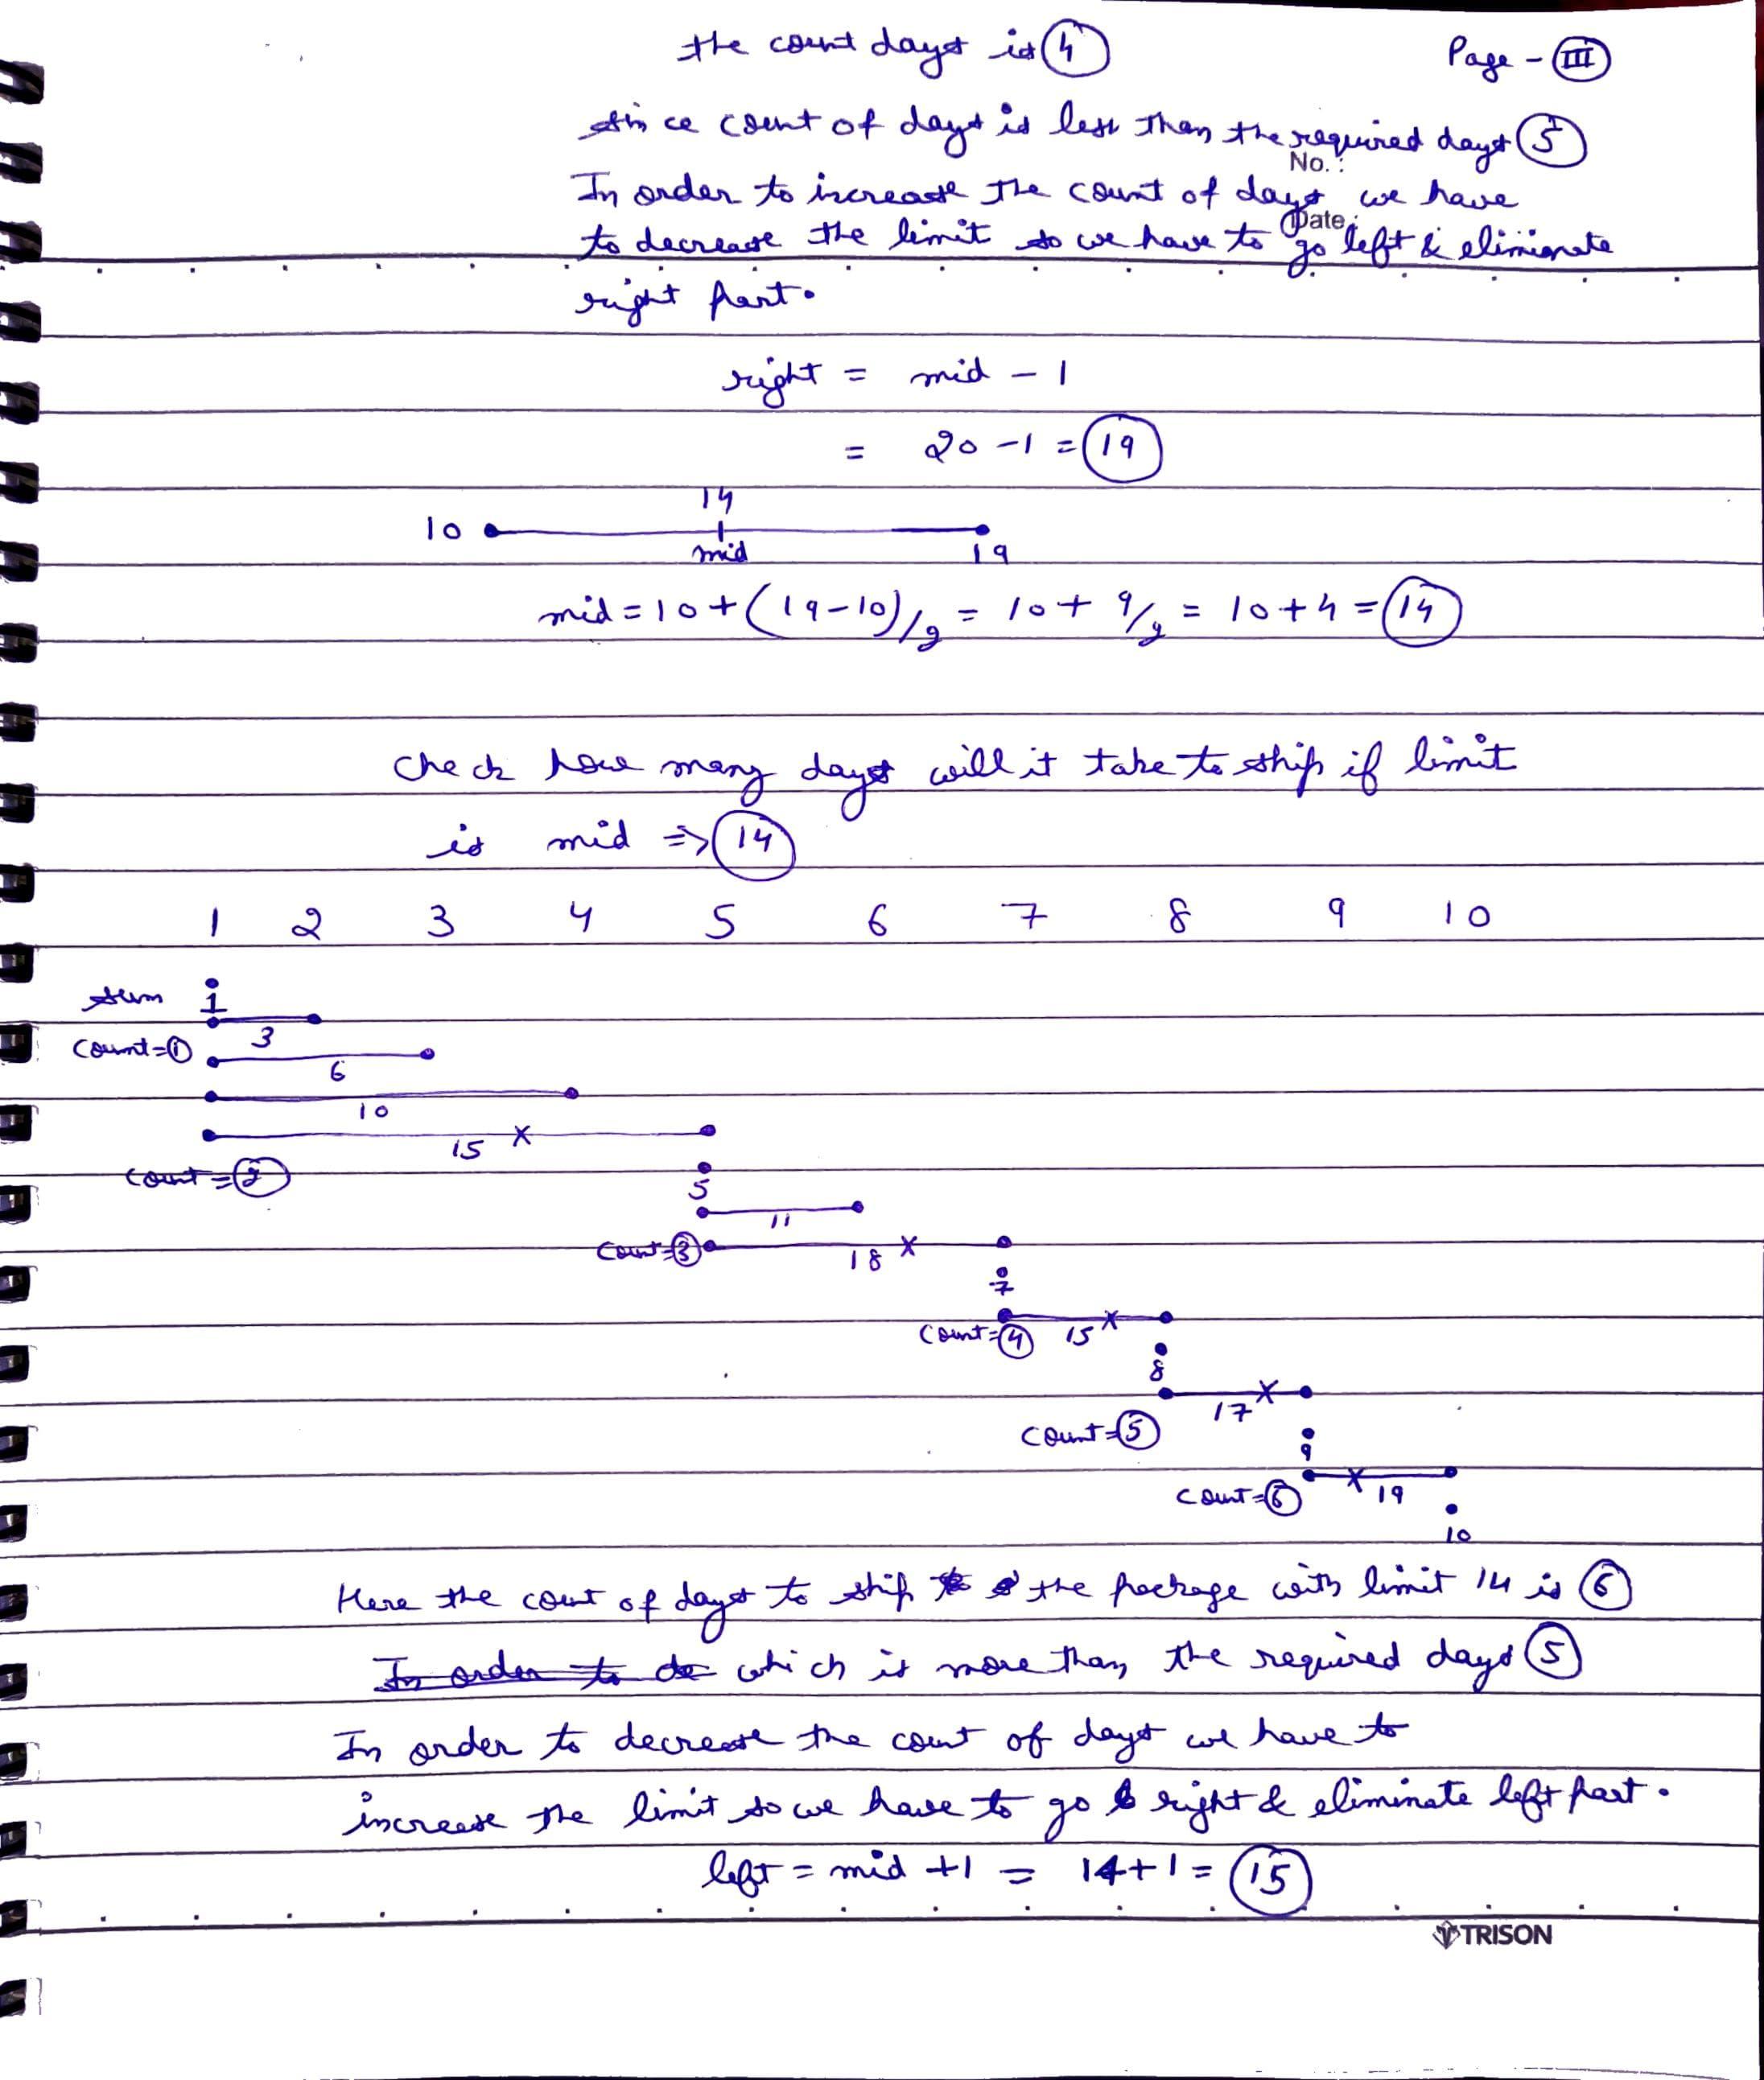 the count days is 4
Page - III
since count of days is less than the required days 5
No. :
In order to increase the count of days we have
Date :
to decrease the limit so we have to go left & eliminate
right part.
right = mid - 1
= 20 - 1 = 19
14
10 mid 19
mid = 10 + (19-10)/2 = 10 + 9/2 = 10 + 4 = 14
check how many days will it take to ship if limit
is mid => 14
1 2 3 4 5 6 7 8 9 10
sum 1
3
count=1
6
10
15 x
count = 2
5
11
count=3 18 x
7
count=4 15 x
8
17 x
count=5
9
count=6 x 19
10
Here the count of days to ship the package with limit 14 is 6
In order to de which is more than the required days 5
In order to decrease the count of days we have to
increase the limit so we have to go right & eliminate left part.
left = mid + 1 = 14 + 1 = 15
TRISON